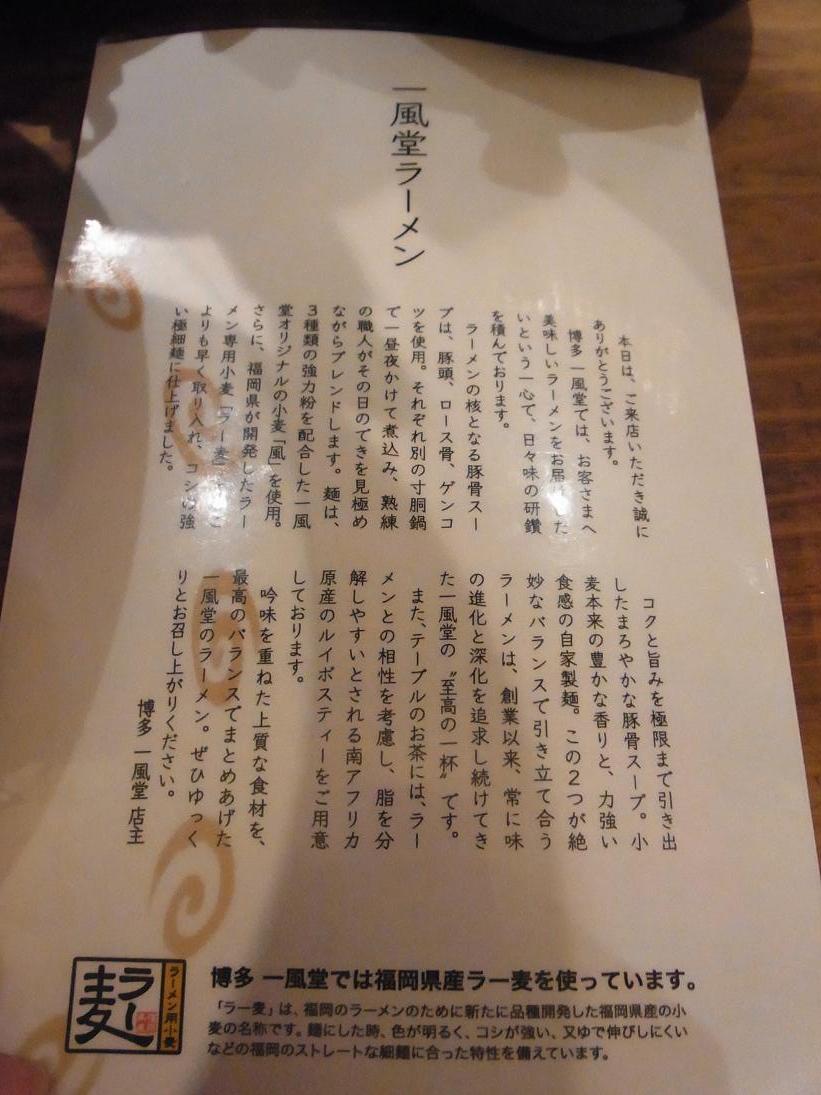 一風堂ラーメン
本日は、ご来店いただき誠に
ありがとうございます。
博多 一風堂では、お客さまへ
美味しいラーメンをお届けした
いという一心で、日々味の研鑽
を積んでおります。
ラーメンの核となる豚骨スー
プは、豚頭、ロース骨、ゲンコ
ツを使用。それぞれ別の寸胴鍋
で一昼夜かけて煮込み、熟練
の職人がその日のできを見極め
ながらブレンドします。麺は、
3種類の強力粉を配合した一風
堂オリジナルの小麦「風」を使用。
さらに、福岡県が開発したラー
メン専用小麦「ラー麦」を
よりも早く取り入れ、コシの強
い極細麺に仕上げました。
コクと旨みを極限まで引き出
したまろやかな豚骨スープ。小
麦本来の豊かな香りと、力強い
食感の自家製麺。この2つが絶
妙なバランスで引き立て合う
ラーメンは、創業以来、常に味
の進化と深化を追求し続けてき
た一風堂の〝至高の一杯〟です。
また、テーブルのお茶には、ラー
メンとの相性を考慮し、脂を分
解しやすいとされる南アフリカ
原産のルイボスティーをご用意
しております。
吟味を重ねた上質な食材を、
最高のバランスでまとめあげた
一風堂のラーメン。ぜひゆっく
りとお召し上がりください。
博多 一風堂 店主
ラー麦
ラーメン用小麦
博多 一風堂では福岡県産ラー麦を使っています。
「ラー麦」は、福岡のラーメンのために新たに品種開発した福岡県産の小
麦の名称です。麺にした時、色が明るく、コシが強い、又ゆで伸びしにくい
などの福岡のストレートな細麺に合った特性を備えています。